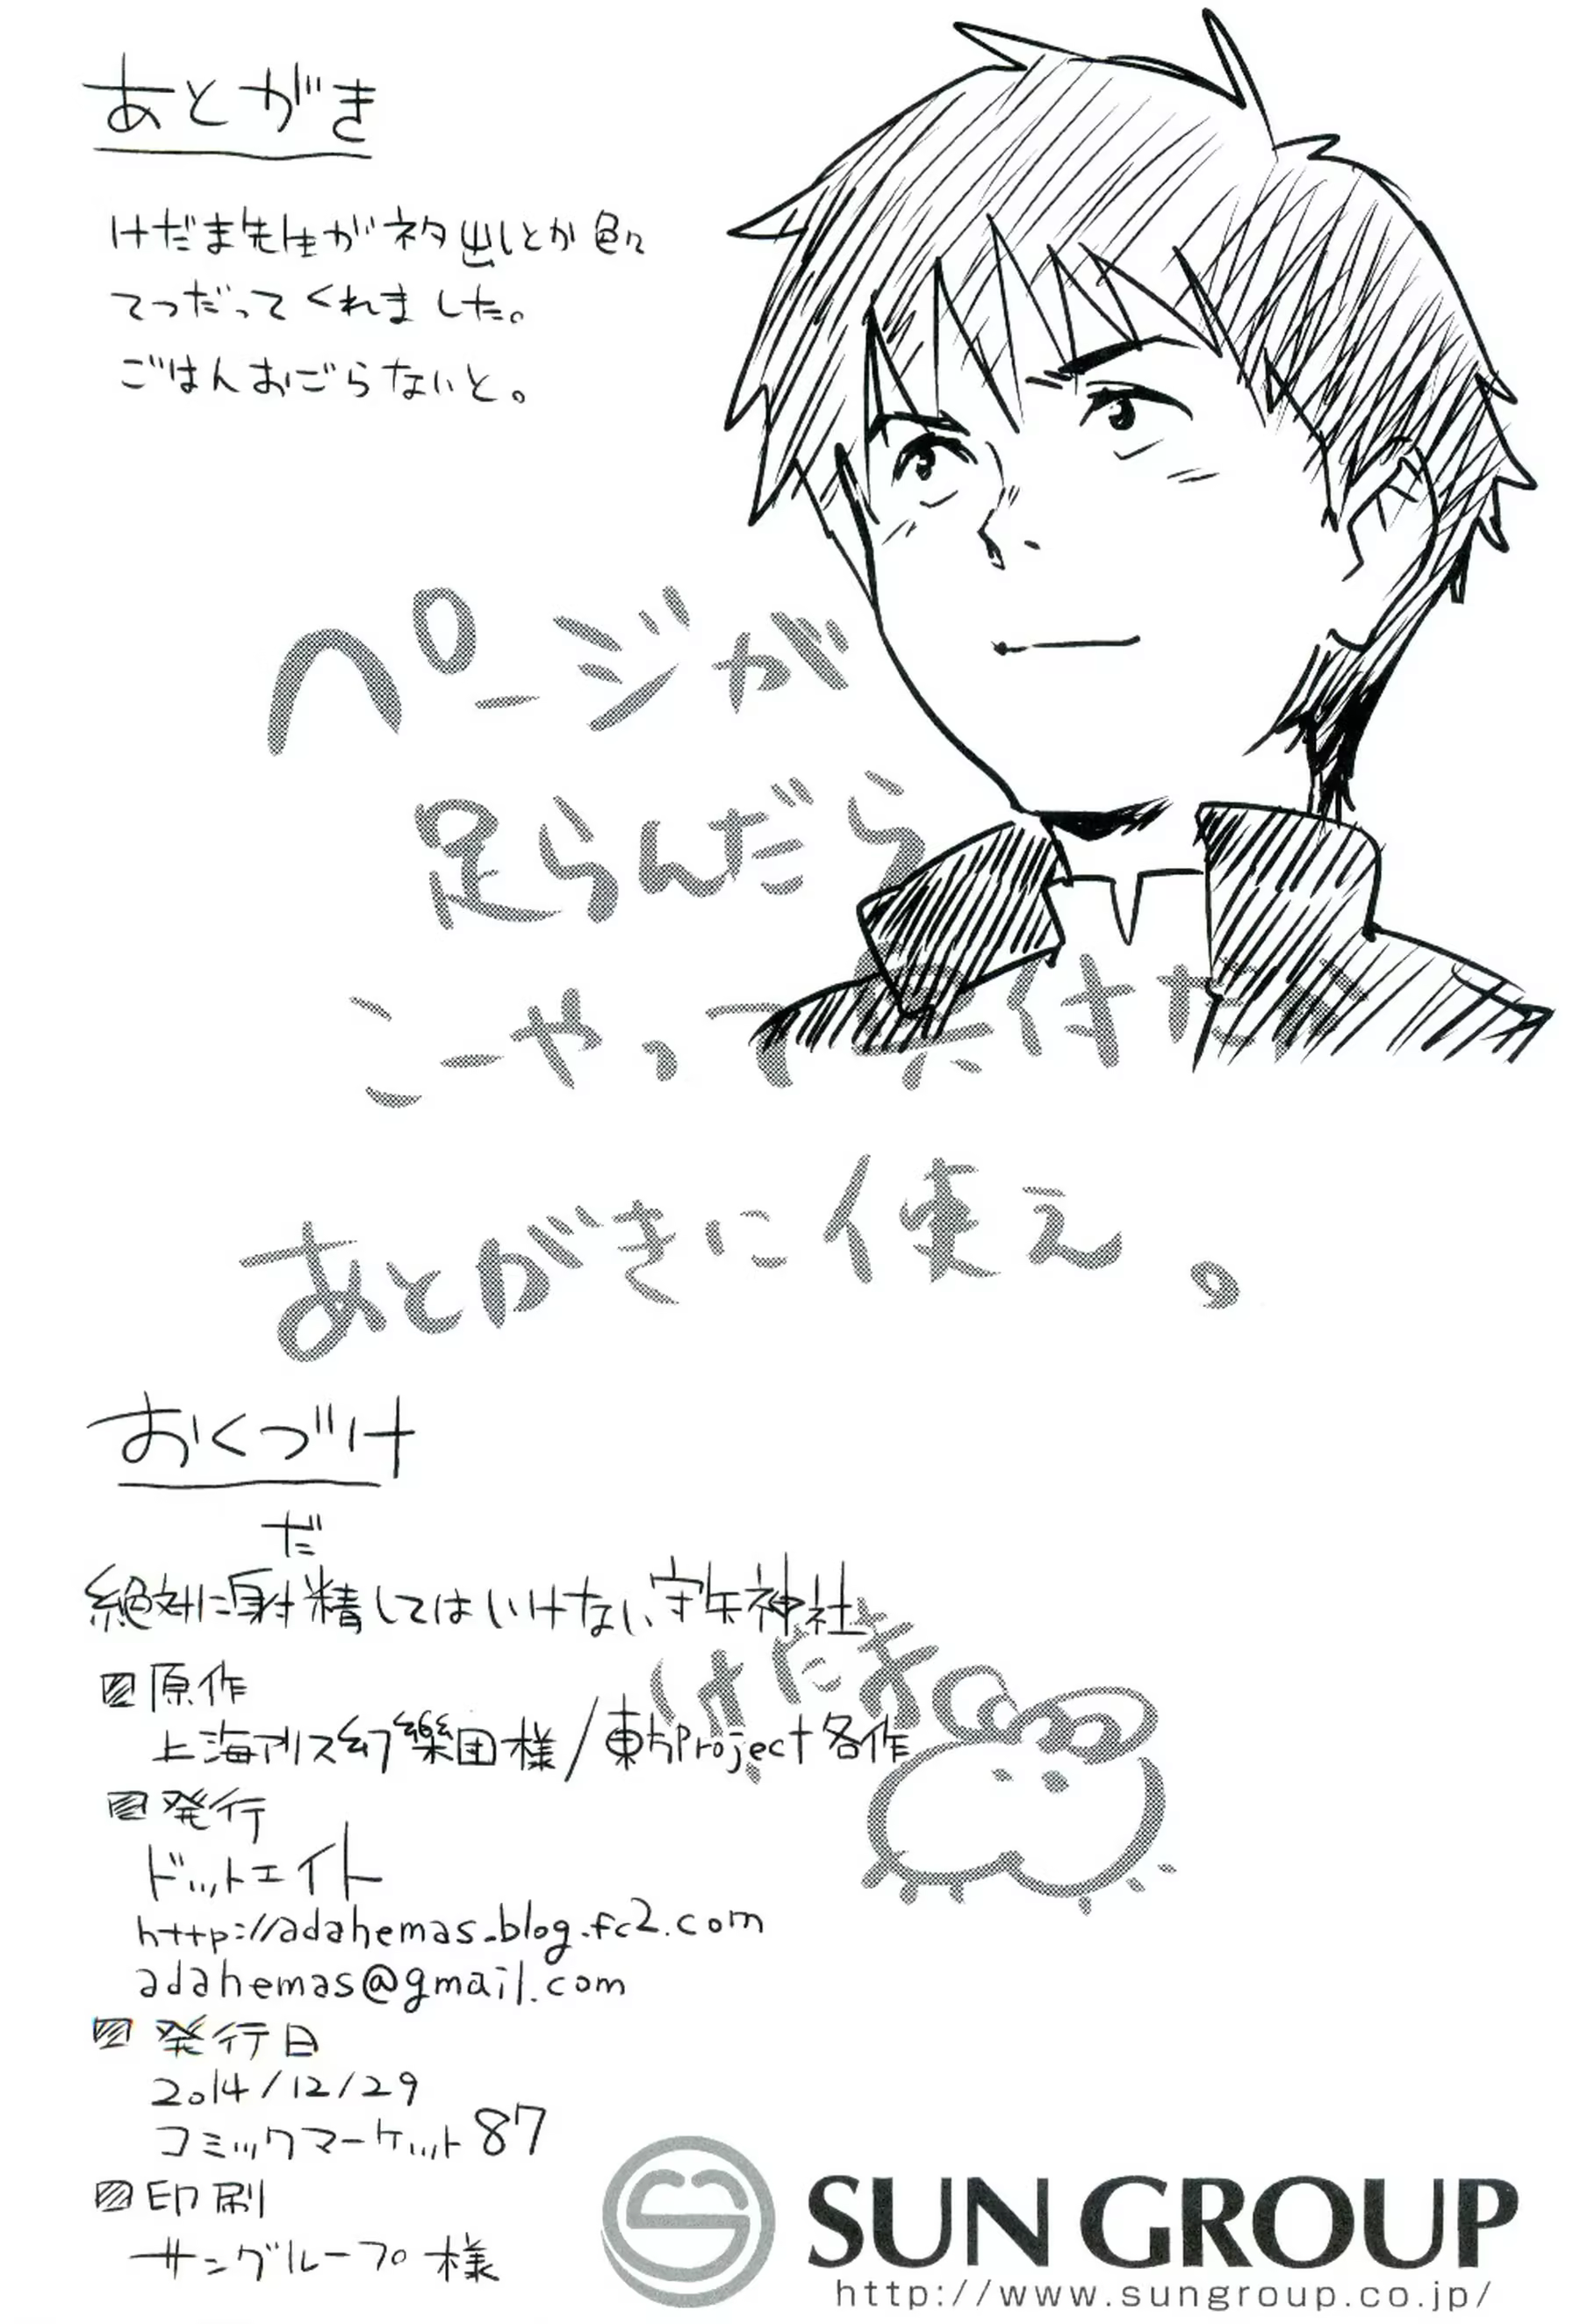 あとがき
けだま先生がネタ出しとか色々
てつだってくれました。
ごはんおごらないと。
ページが
足らんだら
こーやって
付
あとがきに使え。
おくづけ
だ
絶対に射精してはいけない守矢神社
けだま
原作
上海アリス幻樂団様/東方Project各作
発行
ドットエイト
http://adahemas.blog.fc2.com
adahemas@gmail.com
発行日
2014/12/29
コミックマーケット87
印刷
サングループ様
SUN GROUP
http://www.sungroup.co.jp/